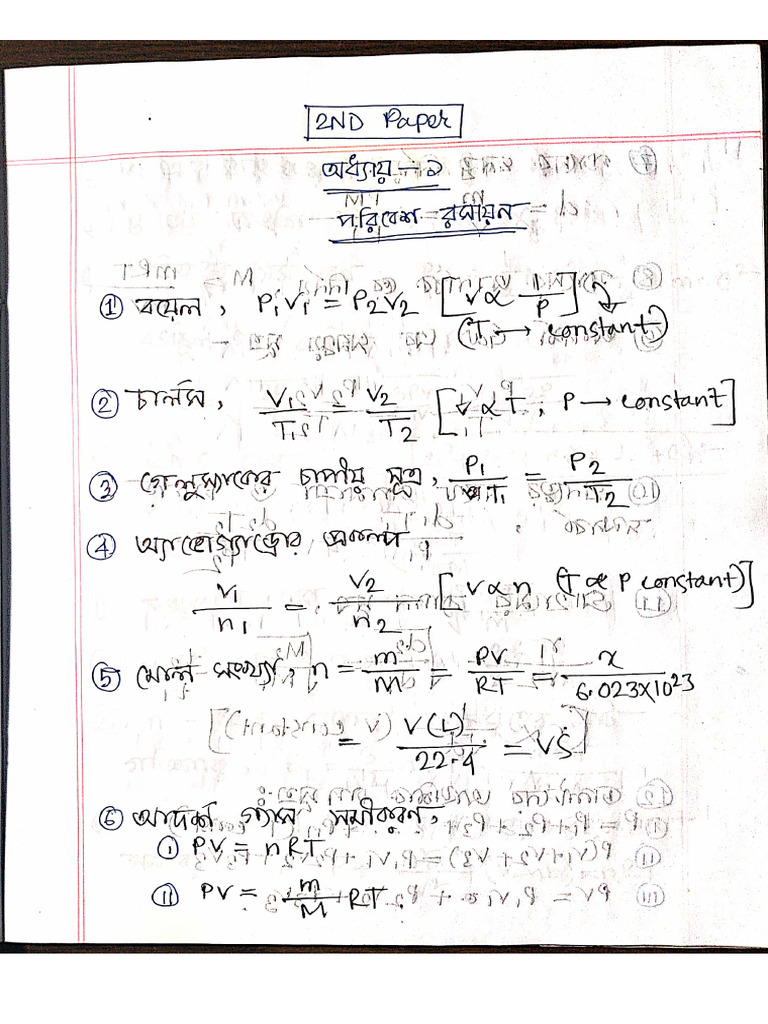 2ND Paper
অধ্যায় - ১
পরিবেশ রসায়ন
① বয়েল, P₁V₁ = P₂V₂ [V ∝ 1/P]
(T → constant)
② চার্লস, V₁/T₁ = V₂/T₂ [V ∝ T, P → constant]
③ গেলুস্যাকের চাপীয় সূত্র, P₁/T₁ = P₂/T₂
④ অ্যাভোগ্যাড্রোর প্রকল্প
V₁/n₁ = V₂/n₂ [V ∝ n (T & P constant)]
⑤ মোল সংখ্যা, n = m/M = PV/RT = x/6.023×10²³
= V(L)/22.4 = VS
⑥ আদর্শ গ্যাস সমীকরণ,
ⓘ PV = nRT
ⓘⓘ PV = m/M RT